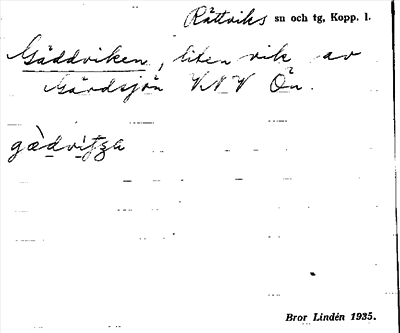 Rättviks sn och tg, Kopp. l.
Gäddviken, liten vik av
Gärdsjön VNV Ön.
gæ̀dvìtʒa
Bror Lindén 1935.